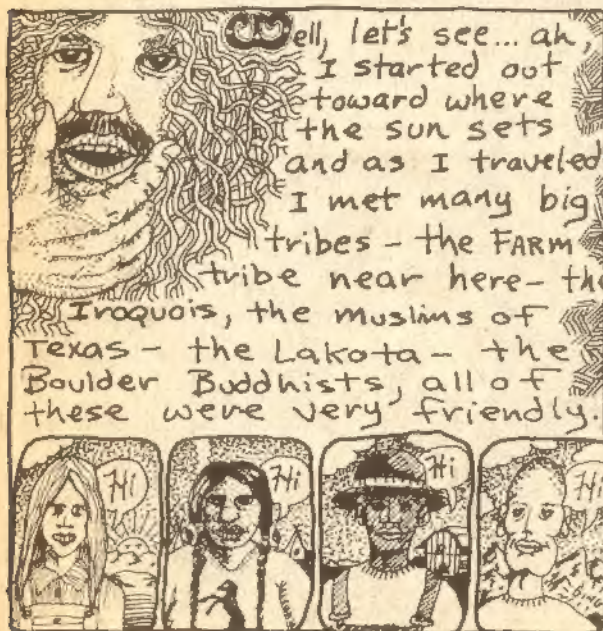 Well, let's see... ah,
I started out
toward where
the sun sets
and as I traveled
I met many big
tribes - the FARM
tribe near here - the
Iroquois, the muslims of
Texas - the Lakota - the
Boulder Buddhists, all of
these were very friendly.
Hi
Hi
Hi
Hi